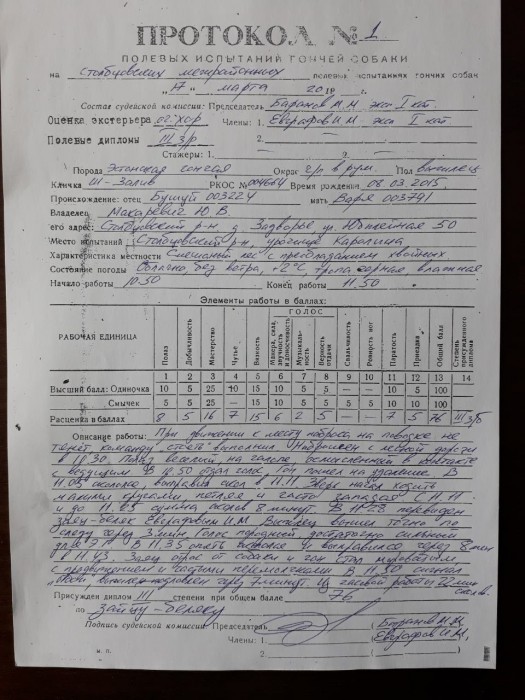 ПРОТОКОЛ № 1
ПОЛЕВЫХ ИСПЫТАНИЙ ГОНЧЕЙ СОБАКИ
на Столбцовских межрайонных полевых испытаниях гончих собак
„17" марта 2019 г.
Состав судейской комиссии: Председатель Баранов И.Н. экс I кат.
Оценка экстерьера оч/хор Члены: 1. Евграфов И.М. экс I кат.
Полевые дипломы III з/р 2.
Стажеры: 1. 2.
Порода Эстонская гончая Окрас ч/п в рум. Пол выжлец
Кличка Ш-Залив РКОС № 004664 Время рождения 08.03.2015
Происхождение: отец Бушуй 003224 мать Варя 003791
Владелец Макаревич Ю.В.
его адрес: Столбцовский р-н д. Задворье ул. Юбилейная 50
Место испытаний Столбцовский р-н, урочище Каролина
Характеристика местности Смешанный лес с преобладанием хвойных
Состояние погоды Облачно без ветра, +2°С тропа черная, влажная
Начало работы 10.50 Конец работы 11.50
Элементы работы в баллах:
РАБОЧАЯ ЕДИНИЦА Полаз Добычливость Мастерство Чутье Вязкость ГОЛОС Манера, сила, звучность и доносчивость Музыкальность Верность отдачи Свальчивость Ровность ног Паратость Приездка Общий балл Степень присужденного диплома
1 2 3 4 5 6 7 8 9 10 11 12 13 14
Высший балл: Одиночка 10 5 25 10 15 10 5 5 — — 10 5 100
Смычек 5 5 25 — 15 10 5 5 5 5 10 10 100
Расценка в баллах 8 5 16 7 15 6 2 5 — — 7 5 76 III з/б
Описание работы: При движении к месту наброса на поводке не
тянет команду стоять выполнил. Наброшен с лесной дороги
в 10.30. Полаз веселый, на галопе, осмысленный в контакте
с ведущим. В 10.50 отдал голос, гон пошел на удаление. В
11.05 сколока, выправил скол в 11.11. Зверь начал ходить
малыми кругами, петляя и часто западая. С 11.11
и до 11.25 сумма сколов 8 минут. В 11.28 перевиден
заяц-беляк Евграфовым И.М. Выжлец вышел точно по
следу через 3 мин. Голос
В 11.35 опять
в 11.43. Заяц от собаки и гон стал
с продвижением и частыми перемолчками. В 11.50 сигнал
через 7 минут. Из часовой работы 22 мин
Присужден диплом III степени при общем балле 76
по зайцу-беляку
Подпись судейской комиссии: Председатель (Баранов И.Н.
Члены: 1. (Евграфов И.М.
2 ( )
м. п.